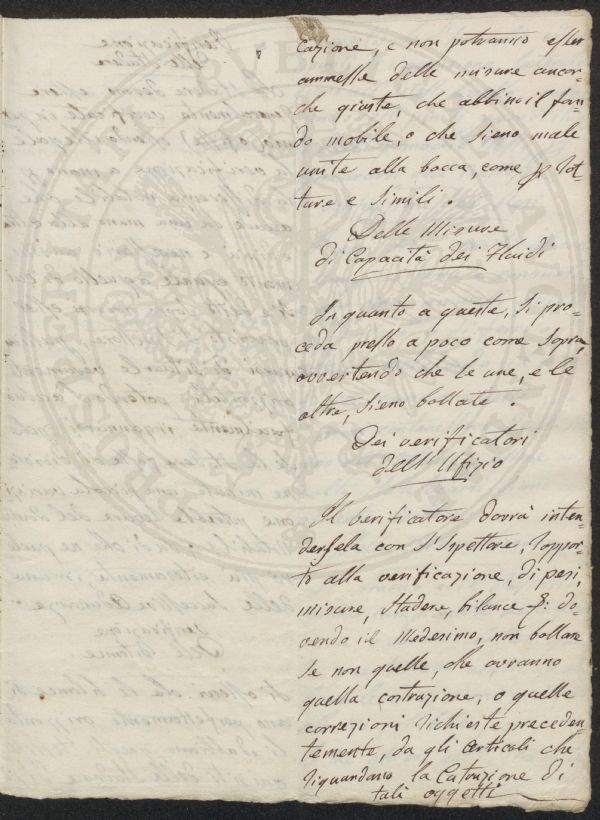 cazione, e non potranno esser
ammesse delle misure ancor-
che giuste, che abbino il fon-
do mobile, o che sieno male
unite alla bocca, come p rot-
ture e simili.
Delle Misure
di Capacità dei Fluidi
In quanto a queste, si pro-
ceda presso a poco come sopra,
avvertendo che le une, e le
altre, sieno bollate.
Dei verificatori
dell'Ufizio
Il verificatore dovrà inten-
dersela con l'Ispettore, rappor-
to alla verificazione, di pesi,
misure, stadere, bilance &: do-
vendo il Medesimo, non bollare
se non quelle, che avranno
quella costruzione, o quelle
correzioni richieste preceden-
temente, da gli Articoli che
riguardano la di
tali oggetti